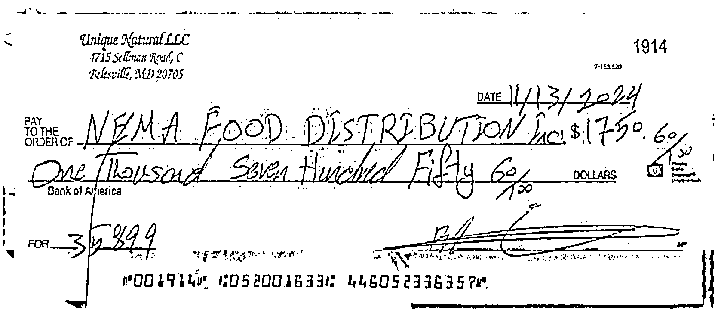 Unique Natural LLC
4715 Sellman Road, C
Beltsville, MD 20705
1914
DATE 11/13/2024
PAY TO THE ORDER OF NEMA FOOD DISTRIBUTION Inc. $ 1750. 60/100
One Thousand Seven Hundred Fifty 60/100 DOLLARS
Bank of America
FOR 35899
⑈001914⑈ ⑆052001633⑆ 446052336357⑈